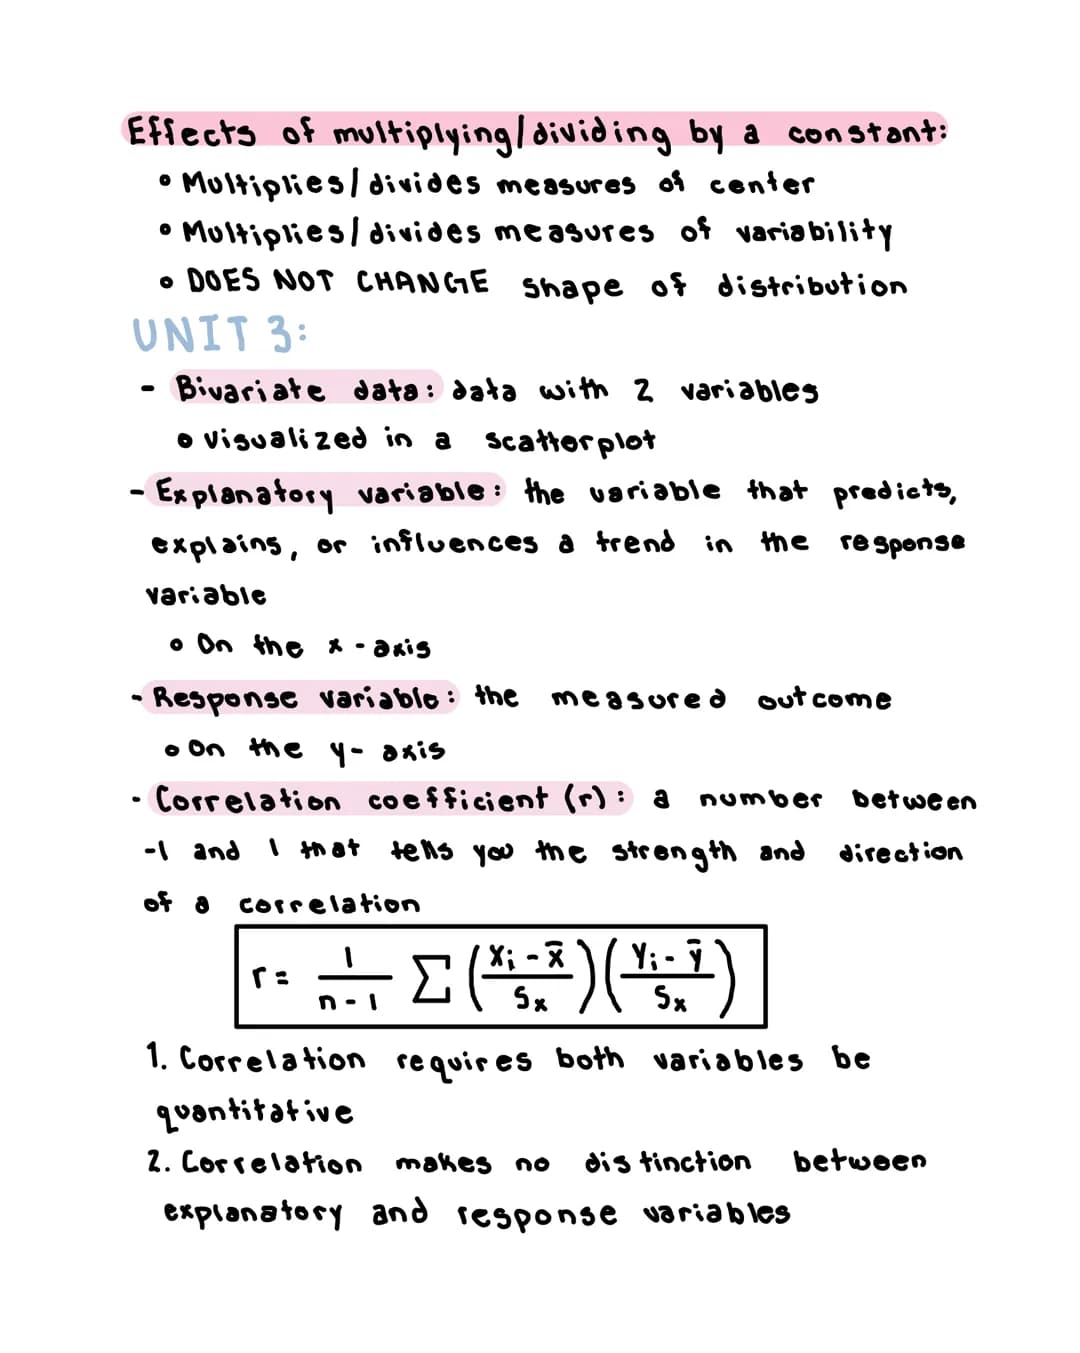 Effects of multiplying/dividing by a constant:
◦ Multiplies/divides measures of center
◦ Multiplies/divides measures of variability
◦ DOES NOT CHANGE shape of distribution
UNIT 3:
- Bivariate data: data with 2 variables
◦ visualized in a scatterplot
- Explanatory variable: the variable that predicts,
explains, or influences a trend in the response
variable
◦ On the x-axis
- Response variable: the measured outcome
◦ On the y-axis
- Correlation coefficient (r): a number between
-1 and 1 that tells you the strength and direction
of a correlation
r = 1/(n-1) Σ ((xᵢ - x̄)/Sₓ)((yᵢ - ȳ)/Sₓ)
1. Correlation requires both variables be
quantitative
2. Correlation makes no distinction between
explanatory and response variables